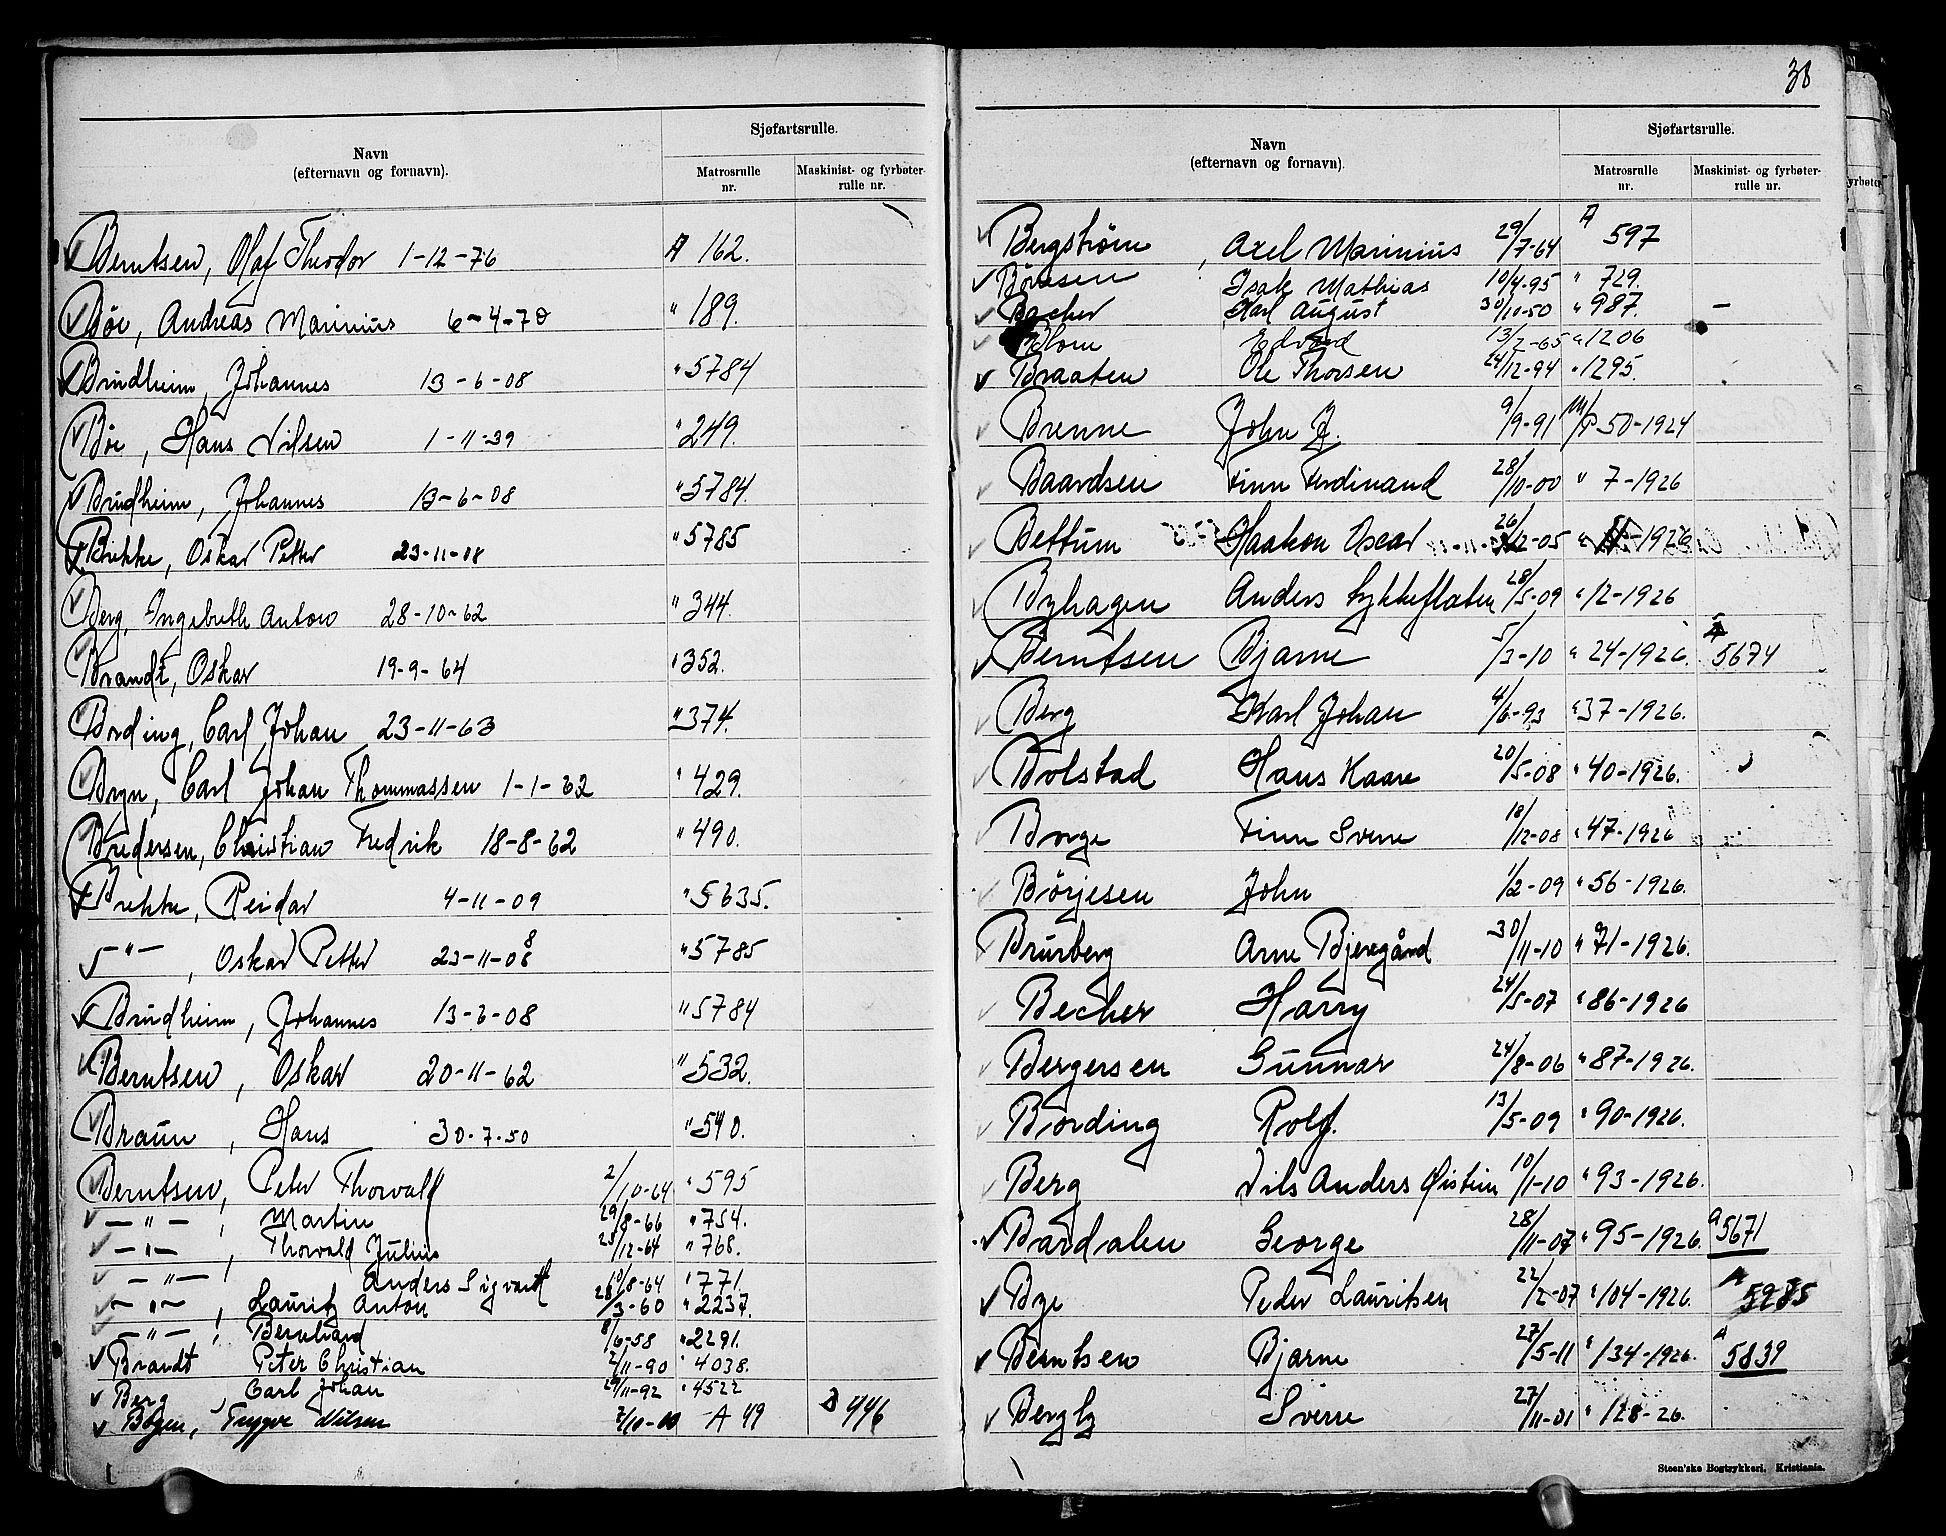 38
Navn
(efternavn og fornavn).
Sjøfartsrulle.
Matrosrulle
nr.
Maskinist- og fyrbøter-
rulle nr.
Berntsen, Olaf Theodor 1-12-76 A 162.
Bøe, Andreas Marinius 6-4-70 " 189.
Brudheim, Johannes 13-6-08 " 5784
Bøe, Hans Nilsen 1-11-39 " 249.
Brudheim, Johannes 13-6-08 " 5784.
Brekke, Oskar Petter 23-11-08 " 5785
Berg, Ingebreth Anton 28-10-62 " 344.
Brandt, Oskar 19-9-64 " 352.
Bording, Carl Johan 23-11-63 " 374.
Bryn, Carl Johan Thommassen 1-1-62 " 429.
Bredersen, Christian Fredrik 18-8-62 " 490.
Brekke, Reidar 4-11-09 " 5635.
— " — , Oskar Petter 23-11-08 " 5785
Brudheim, Johannes 13-6-08 " 5784
Berntsen, Oskar 20-11-62 " 532.
Braun, Hans 30-7-50 " 540.
Berntsen, Peter Thorvald 2/10-64 " 595
— " — , Martin 29/8-66 " 754.
— " — , Thorvald Julius 25/12-64 " 768.
— " — , Anders Sigvardt 10/8-64 " 771.
— " — , Lauritz Anton 28/3-60 " 2237.
— " — , Bernhard 8/6-58 " 2291.
Brandt Peter Christian 2/11-90 " 4038.
Berg, Carl Johan 29/11-92 " 4522
Bøgen, Trygve Nilsen 7/10-00 A 49 B 446
Navn
(efternavn og fornavn).
Sjøfartsrulle.
Matrosrulle
nr.
Maskinist- og fyrbøter-
rulle nr.
Bergstrøm, Axel Marinius 29/7-64 A 597
Børresen Isak Mathias 10/4-95 " 729.
Bacher Karl August 30/10-50 " 987. —
Blom Edvard 13/2-65 " 1206
Braaten Ole Thorsen 24/12-94 " 1295.
Brenne John J. 9/9-91 50-1924
Baardsen Finn Ferdinand 28/10-00 " 7-1926
Bettum Haakon Oscar 26/12-05 " -1926
Byhagen Anders Lykkeflaten 28/5-09 " 12-1926
Berntsen Bjarne 5/3-10 " 24-1926. A 5674
Berg Karl Johan 4/6-93 " 37-1926.
Bolstad Hans Kaare 20/5-08 " 40-1926.
Borge Finn Sverre 18/12-08 " 47-1926
Børjesen John 1/2-09 " 56-1926.
Brurberg Arne Bjeregård 30/11-10 " 71-1926.
Becher Harry 24/5-07 " 86-1926
Bergersen Gunnar 24/8-06 " 87-1926.
Bording Rolf. 13/5-09 " 90-1926.
Berg Nils Anders Østein 10/1-10 " 93-1926.
Bardalen George 28/11-07 " 95-1926. A 5671
Bye Peder Lauritsen 22/2-07 " 104-1926. A 5985
Berntsen Bjarne 27/5-11 " 134-1926. A 5839
Bergly Sverre 27/11-01 " 128-26.
Steen'ske Bogtrykkeri, Kristiania.